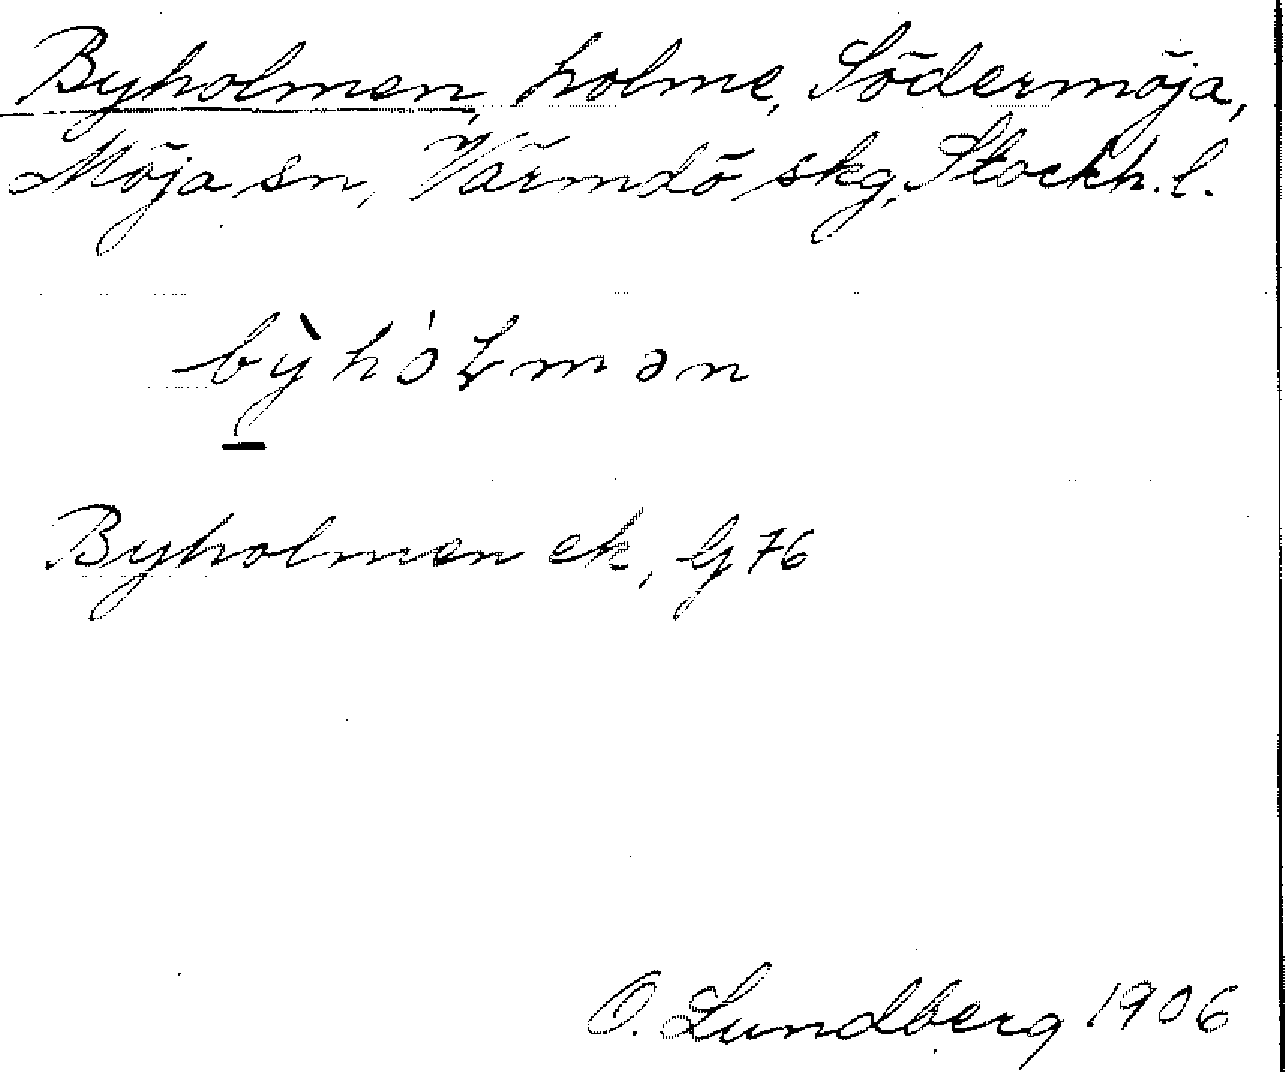 Byholmen, holme, Södermöja,
Möja sn, Värmdö skg, Stockh. l.
bỳ̱hóLmən
Byholmen ek, G 76
O. Lundberg 1906